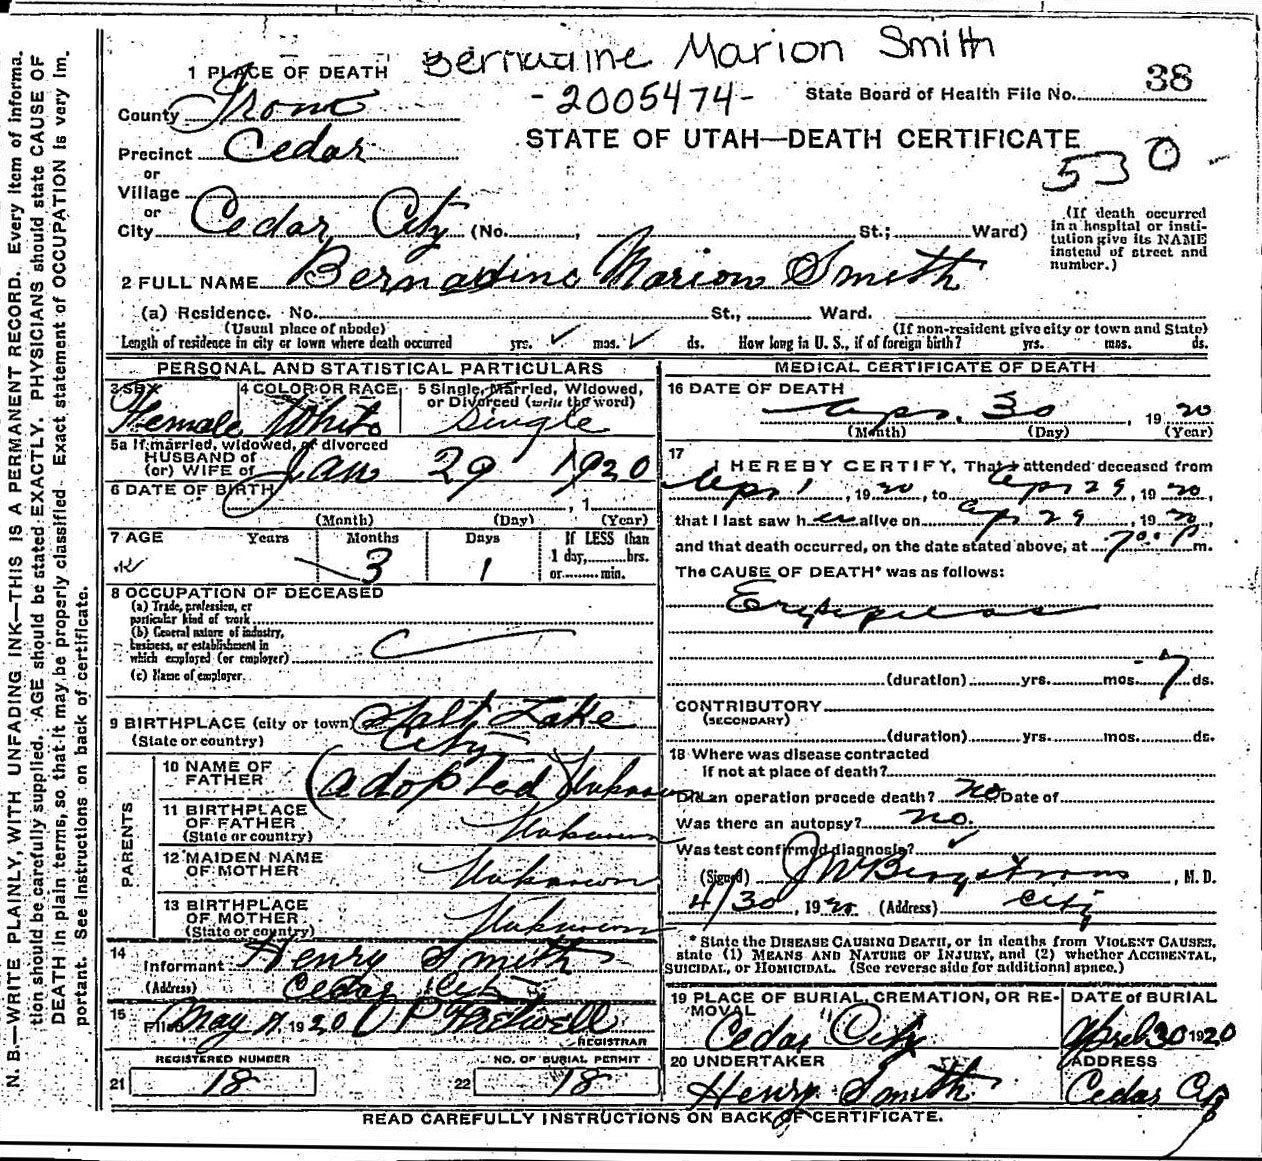 Bernadine Marion Smith
1 PLACE OF DEATH
38
-2005474-
State Board of Health File No.
County Iron
STATE OF UTAH—DEATH CERTIFICATE
Precinct Cedar
530 -
or
Village
or
City Cedar City (No. , St.; Ward)
(If death occurred in a hospital or insti-
tution give its NAME
instead of street and
number.)
2 FULL NAME Bernadine Marion Smith
(a) Residence. No. St., Ward.
(Usual place of abode) (If non-resident give city or town and State)
Length of residence in city or town where death occurred yrs. mos. ds. How long in U. S., if of foreign birth? yrs. mos. ds.
PERSONAL AND STATISTICAL PARTICULARS
3 SEX 4 COLOR OR RACE 5 Single, Married, Widowed,
or Divorced (write the word)
Female White Single
5a If married, widowed, or divorced
HUSBAND of
(or) WIFE of
Jan 29 1920
6 DATE OF BIRTH , 1
(Month) (Day) (Year)
7 AGE Years Months Days If LESS than
1 day, hrs.
or min.
3 1
8 OCCUPATION OF DECEASED
(a) Trade, profession, or
particular kind of work
(b) General nature of industry,
business, or establishment in
which employed (or employer)
(c) Name of employer
9 BIRTHPLACE (city or town) Salt Lake
(State or country) City
PARENTS
10 NAME OF
FATHER (adopted) Unknown
11 BIRTHPLACE
OF FATHER
(State or country) Unknown
12 MAIDEN NAME
OF MOTHER Unknown
13 BIRTHPLACE
OF MOTHER
(State or country) Unknown
14
Informant Henry Smith
(Address) Cedar City
15
Filed May 1920 Fretwell
REGISTRAR
REGISTERED NUMBER NO. OF BURIAL PERMIT
21 18 22 18
MEDICAL CERTIFICATE OF DEATH
16 DATE OF DEATH
Apr. 30, 1920
(Month) (Day) (Year)
17
I HEREBY CERTIFY, That I attended deceased from
Apr 1, 1920, to Apr 29, 1920,
that I last saw her alive on Apr 29, 1920,
and that death occurred, on the date stated above, at 7:00 P m.
The CAUSE OF DEATH* was as follows:
Erysipelas
(duration) yrs. mos. 7 ds.
CONTRIBUTORY
(SECONDARY)
(duration) yrs. mos. ds.
18 Where was disease contracted
if not at place of death?
Did an operation precede death? no Date of
Was there an autopsy? no.
Was test confirmed diagnosis?
(Signed) J W Bergstrom, M. D.
4/30, 1920 (Address) City
* State the DISEASE CAUSING DEATH, or in deaths from VIOLENT CAUSES,
state (1) MEANS AND NATURE OF INJURY, and (2) whether ACCIDENTAL,
SUICIDAL, or HOMICIDAL. (See reverse side for additional space.)
19 PLACE OF BURIAL, CREMATION, OR RE-
MOVAL
Cedar City
DATE of BURIAL
April 30 1920
20 UNDERTAKER
Henry Smith
ADDRESS
Cedar City
READ CAREFULLY INSTRUCTIONS ON BACK OF CERTIFICATE.
N. B.—WRITE PLAINLY, WITH UNFADING INK—THIS IS A PERMANENT RECORD. Every item of informa-
tion should be carefully supplied. AGE should be stated EXACTLY. PHYSICIANS should state CAUSE OF
DEATH in plain terms, so that it may be properly classified. Exact statement of OCCUPATION is very im-
portant. See instructions on back of certificate.